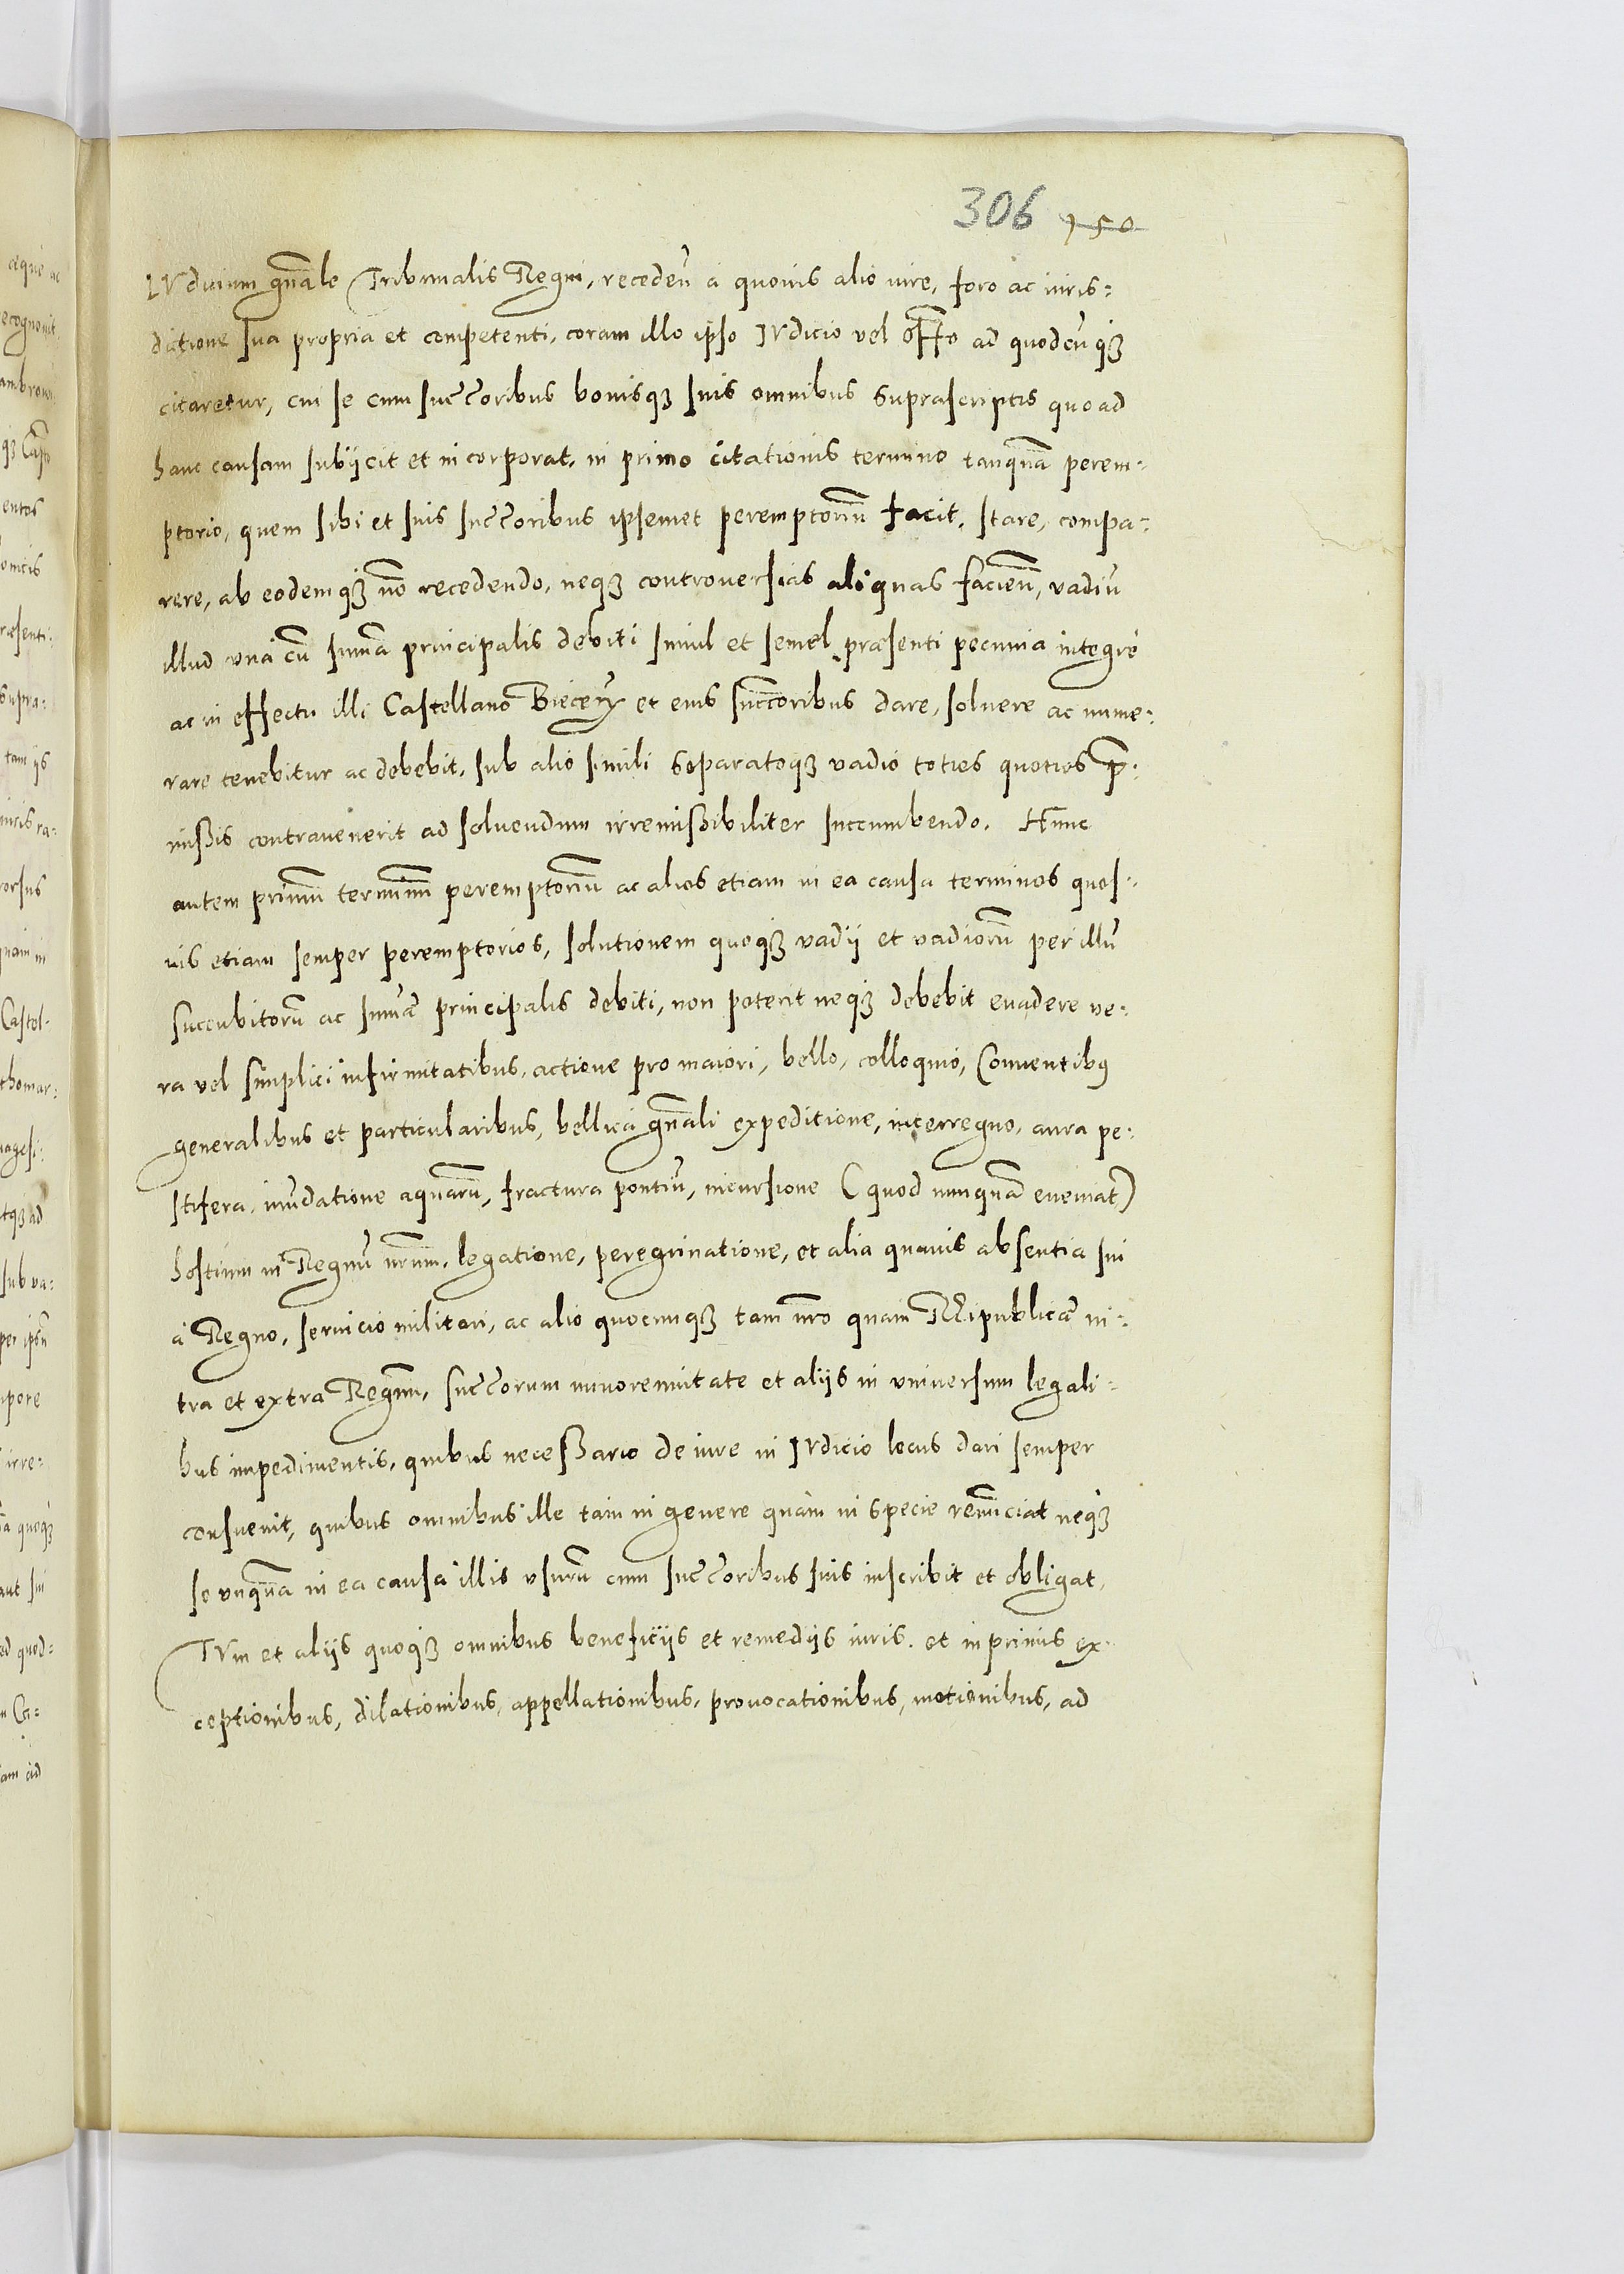 306 150
IVdicium gnãle Tribunalis Regni, recedeñ à quouis alio iure, foro ac iuris-
dictione sua propria et competenti, coram illo ipso IVdicio vel offo ad quodcũq3
citaretur, cui se cum succoribus bonisq3 suis omnibus suprascriptis quo ad
hanc causam subijcit et incorporat, in primo citationis termino tanquã perem-
ptorio, quem sibi et suis succoribus ipsemet peremptoriũ facit, stare, compa-
rere, ab eodemq3 nõ recedendo, neq3 controuersias aliquas facieñ, vadiũ
illud vnà cũ sum̃a principalis debiti simul et semel præsenti pecunia integrè
ac in effectu illi Castellano Biecen̄ et eius succoribus dare, soluere ac nume-
rare tenebitur ac debebit, sub alio simili separatoq3 vadio toties quoties p̃-
missis contrauenerit ad soluendum irremissibiliter succumbendo. Hunc
autem primũ terminũ peremptoriũ ac alios etiam in ea causa terminos quos-
uis etiam semper peremptorios, solutionem quoq3 vadij et vadiorũ per illũ
succubitorũ ac sum̃æ principalis debiti, non poterit neq3 debebit euadere ve-
ra vel simplici infirmitatibus, actione pro maiori, bello, colloquio, Conuentib9
generalibus et particularibus, bellica gnãli expeditione, interregno, aura pe-
stifera, inũdatione aquarũ, fractura pontiũ, incursione (quod nunquã eueniat)
hostium in Regnũ nrũm, legatione, peregrinatione, et alia quauis absentia sui
à Regno, seruicio militari, ac alio quocumq3 tam nr̃o quam REipublicæ in-
tra et extra Regnũ, succorum minorennitate et alijs in vniuersum legali-
bus impedimentis, quibus necessario de iure in IVdicio locus dari semper
consueuit, quibus omnibus ille tam in genere quàm in specie renũciat neq3
se vnquã in ea causa illis vsurũ cum succoribus suis inscribit et obligat,
TVm et alijs quoq3 omnibus beneficijs et remedijs iuris. et inprimis ex-
ceptionibus, dilationibus, appellationibus, prouocationibus, motionibus, ad